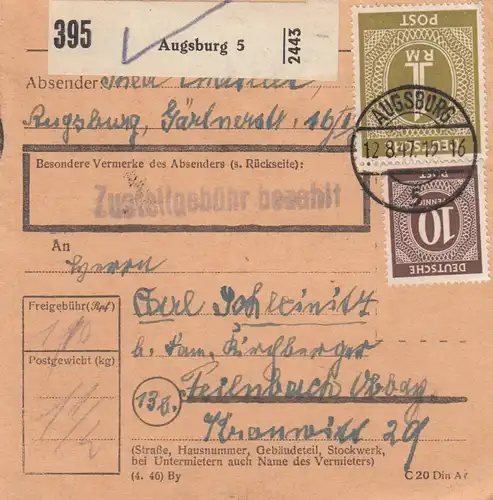 395
Augsburg 5
2443
Absender
Augsburg, Gärtnerstr. 16/I
Besondere Vermerke des Absenders (s. Rückseite):
Zustellgebühr bezahlt
An
Herrn
Carl Schleinitz
b. Fam. Kirchberger
13b.
Feilnbach Obbay.
Kranwitt 29
(Straße, Hausnummer, Gebäudeteil, Stockwerk,
bei Untermietern auch Name des Vermieters)
(4. 46) By
C 20 Din A
Freigebühr (Rpf)
Postgewicht (kg)
DEUTSCHE
POST
1
RM
AUGSBURG
12.8.47.15-16
5
DEUTSCHE
POST
10
PFENNIG